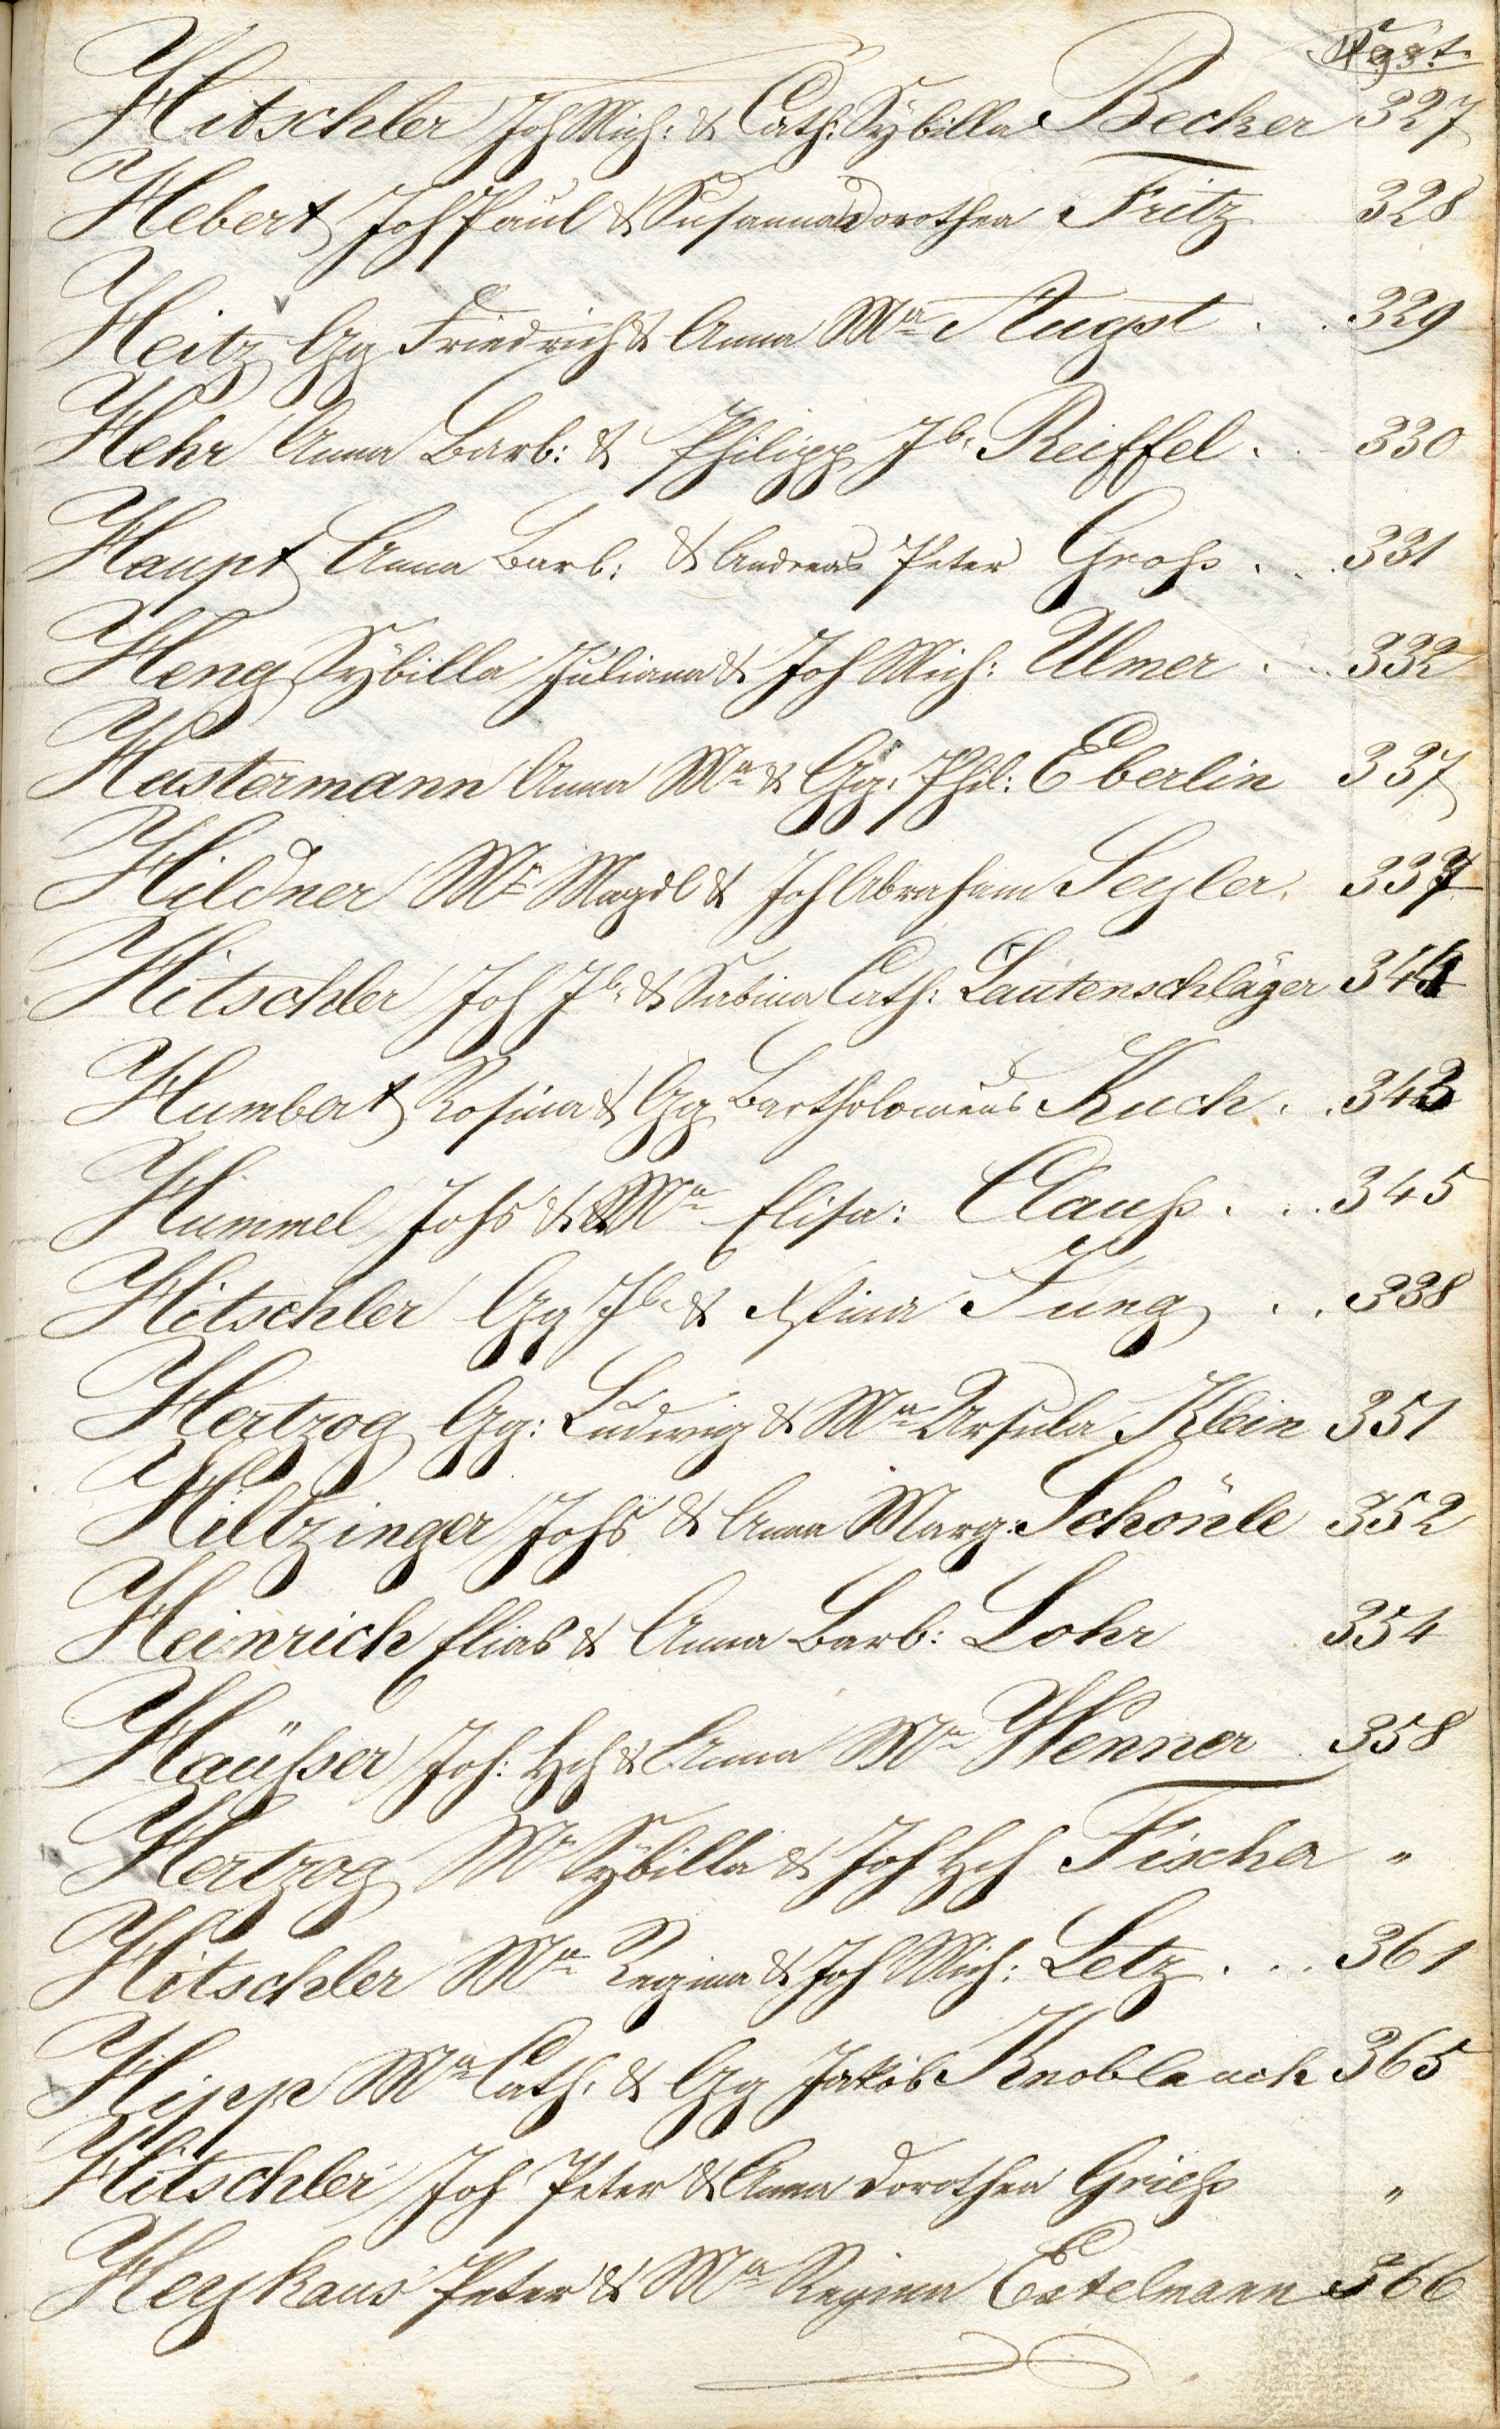 Hitschler Joh Mich: & Cath: Sÿbilla Becker 327
Hebert Joh Paul & Susanna Dorothea Fritz 328
Heitz Gg Friedrich & Anna Mª August . . 329
Hehr Anna Barb: & Philipp Jb. Reiffel . . 330
Haupt Anna Barb: & Andreas Peter Groß . . . 331
Heng Sÿbilla Juliana & Joh Mich: Ulmer . . . 332
Hastermann Anna Mª & Gg: Phil: Eberlin 337
Hildner Mª Magdl & Joh Abraham Seyler. 337
Hitschler Joh Jb. & Sabina Cath: Lautenschläger 341
Humbert Rosina & Gg Bartholomäus Kuch . . 343
Hummel Johs & Mª Elisa: Clauß . . . 345
Hitschler Gg Jb. & Xstina Jung . . 338
Hertzog Gg: Ludwig & Mª Ursula Klein 351
Hiltzinger Johs & Anna Marg. Schönle 352
Heinrich Elias & Anna Barb: Lohr 354
Haüßer Joh: Hch & Anna Mª Wenner 358
Hertzog Mª Sÿbilla & Joh Hch Fischer "
Hitschler Mª Regina & Joh Mich: Letz . . . 361
Hipp Mª Cath. & Gg Jakob Knoblauch 365
Hitschler Joh Peter & Anna Dorothea Grieß "
Heykaus Peter & Mª Regina Estelmann 366